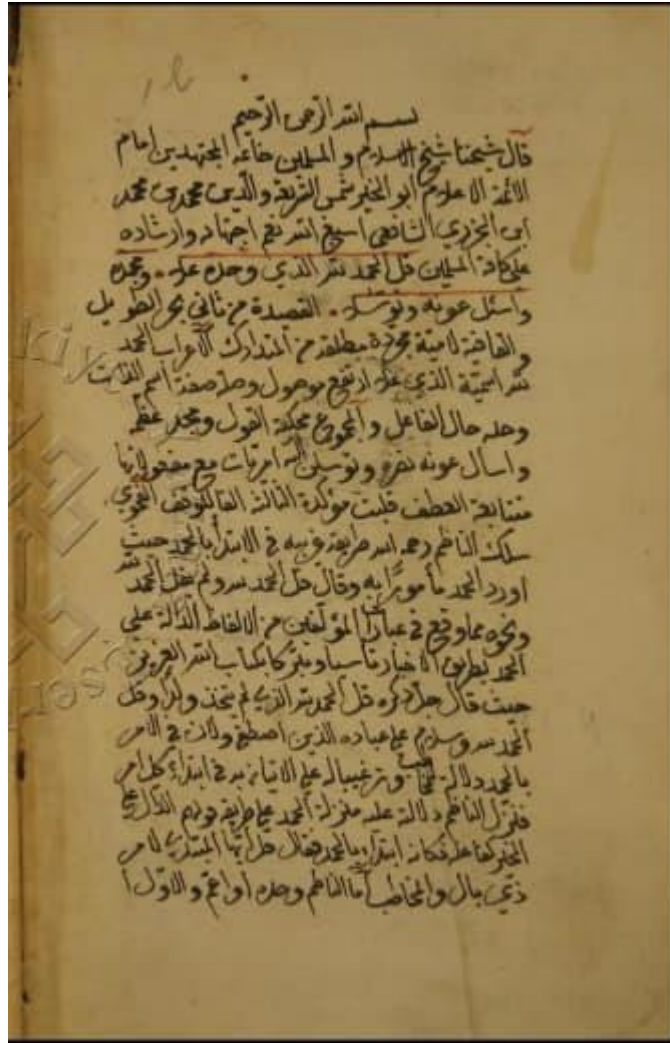 بسم الله الرحمن الرحيم
قال شيخنا شيخ الاسلام والمسلمين خاتمة المجتهدين امام
الائمة الاعلام ابو الخير شمس الشريعة والدين محمد بن محمد
ابن الجزري الشافعي اسبغ الله نعم اجتهاده وارشاده
على كافة المسلمين قل الحمد لله الذي وحده علا ومجده
واسئل عونه وتوسلا القصيدة من ثاني بحر الطويل
والقافية لامية مجردة مطلقة من المتدارك الاعراب الحمد
لله اسمية الذي علا ارتفع موصول وصلة صفة اسم الذات
وحده حال الفاعل والمجموع محكية القول ومجد عظم
واسأل عونه نصره وتوسلن اليه امريات مع مفعولاتها
متتابعة العطف قلبت مؤكدة الثالثة الفا للوقف
سلك الناظم رحمه الله طريقة غريبة في الابتدأ بالحمد حيث
اورد الحمد مأمورا به وقال قل الحمد لله ولم يقل الحمد لله
ونحوه مما وقع في عبارات المؤلفين من الالفاظ الدالة على
الحمد بطريق الاخبار تأسيا وتبركا بكتاب الله العزيز
حيث قال جل ذكره قل الحمد لله الذي لم يتخذ ولدا وقل
الحمد لله وسلام على عباده الذين اصطفى ولان في الامر
بالحمد دلالة للمخاطب وترغيبا له على الاتيان به في ابتداء كل امر
فنزل الناظم دلالة عليه منزلة الحمد على طريقة قولهم الدال على
الخير كفاعله فكانه ابتدأ بالحمد فقال قل ايها المبتدي لامر
ذي بال والمخاطب اما الناظم وحده او اعم والاول